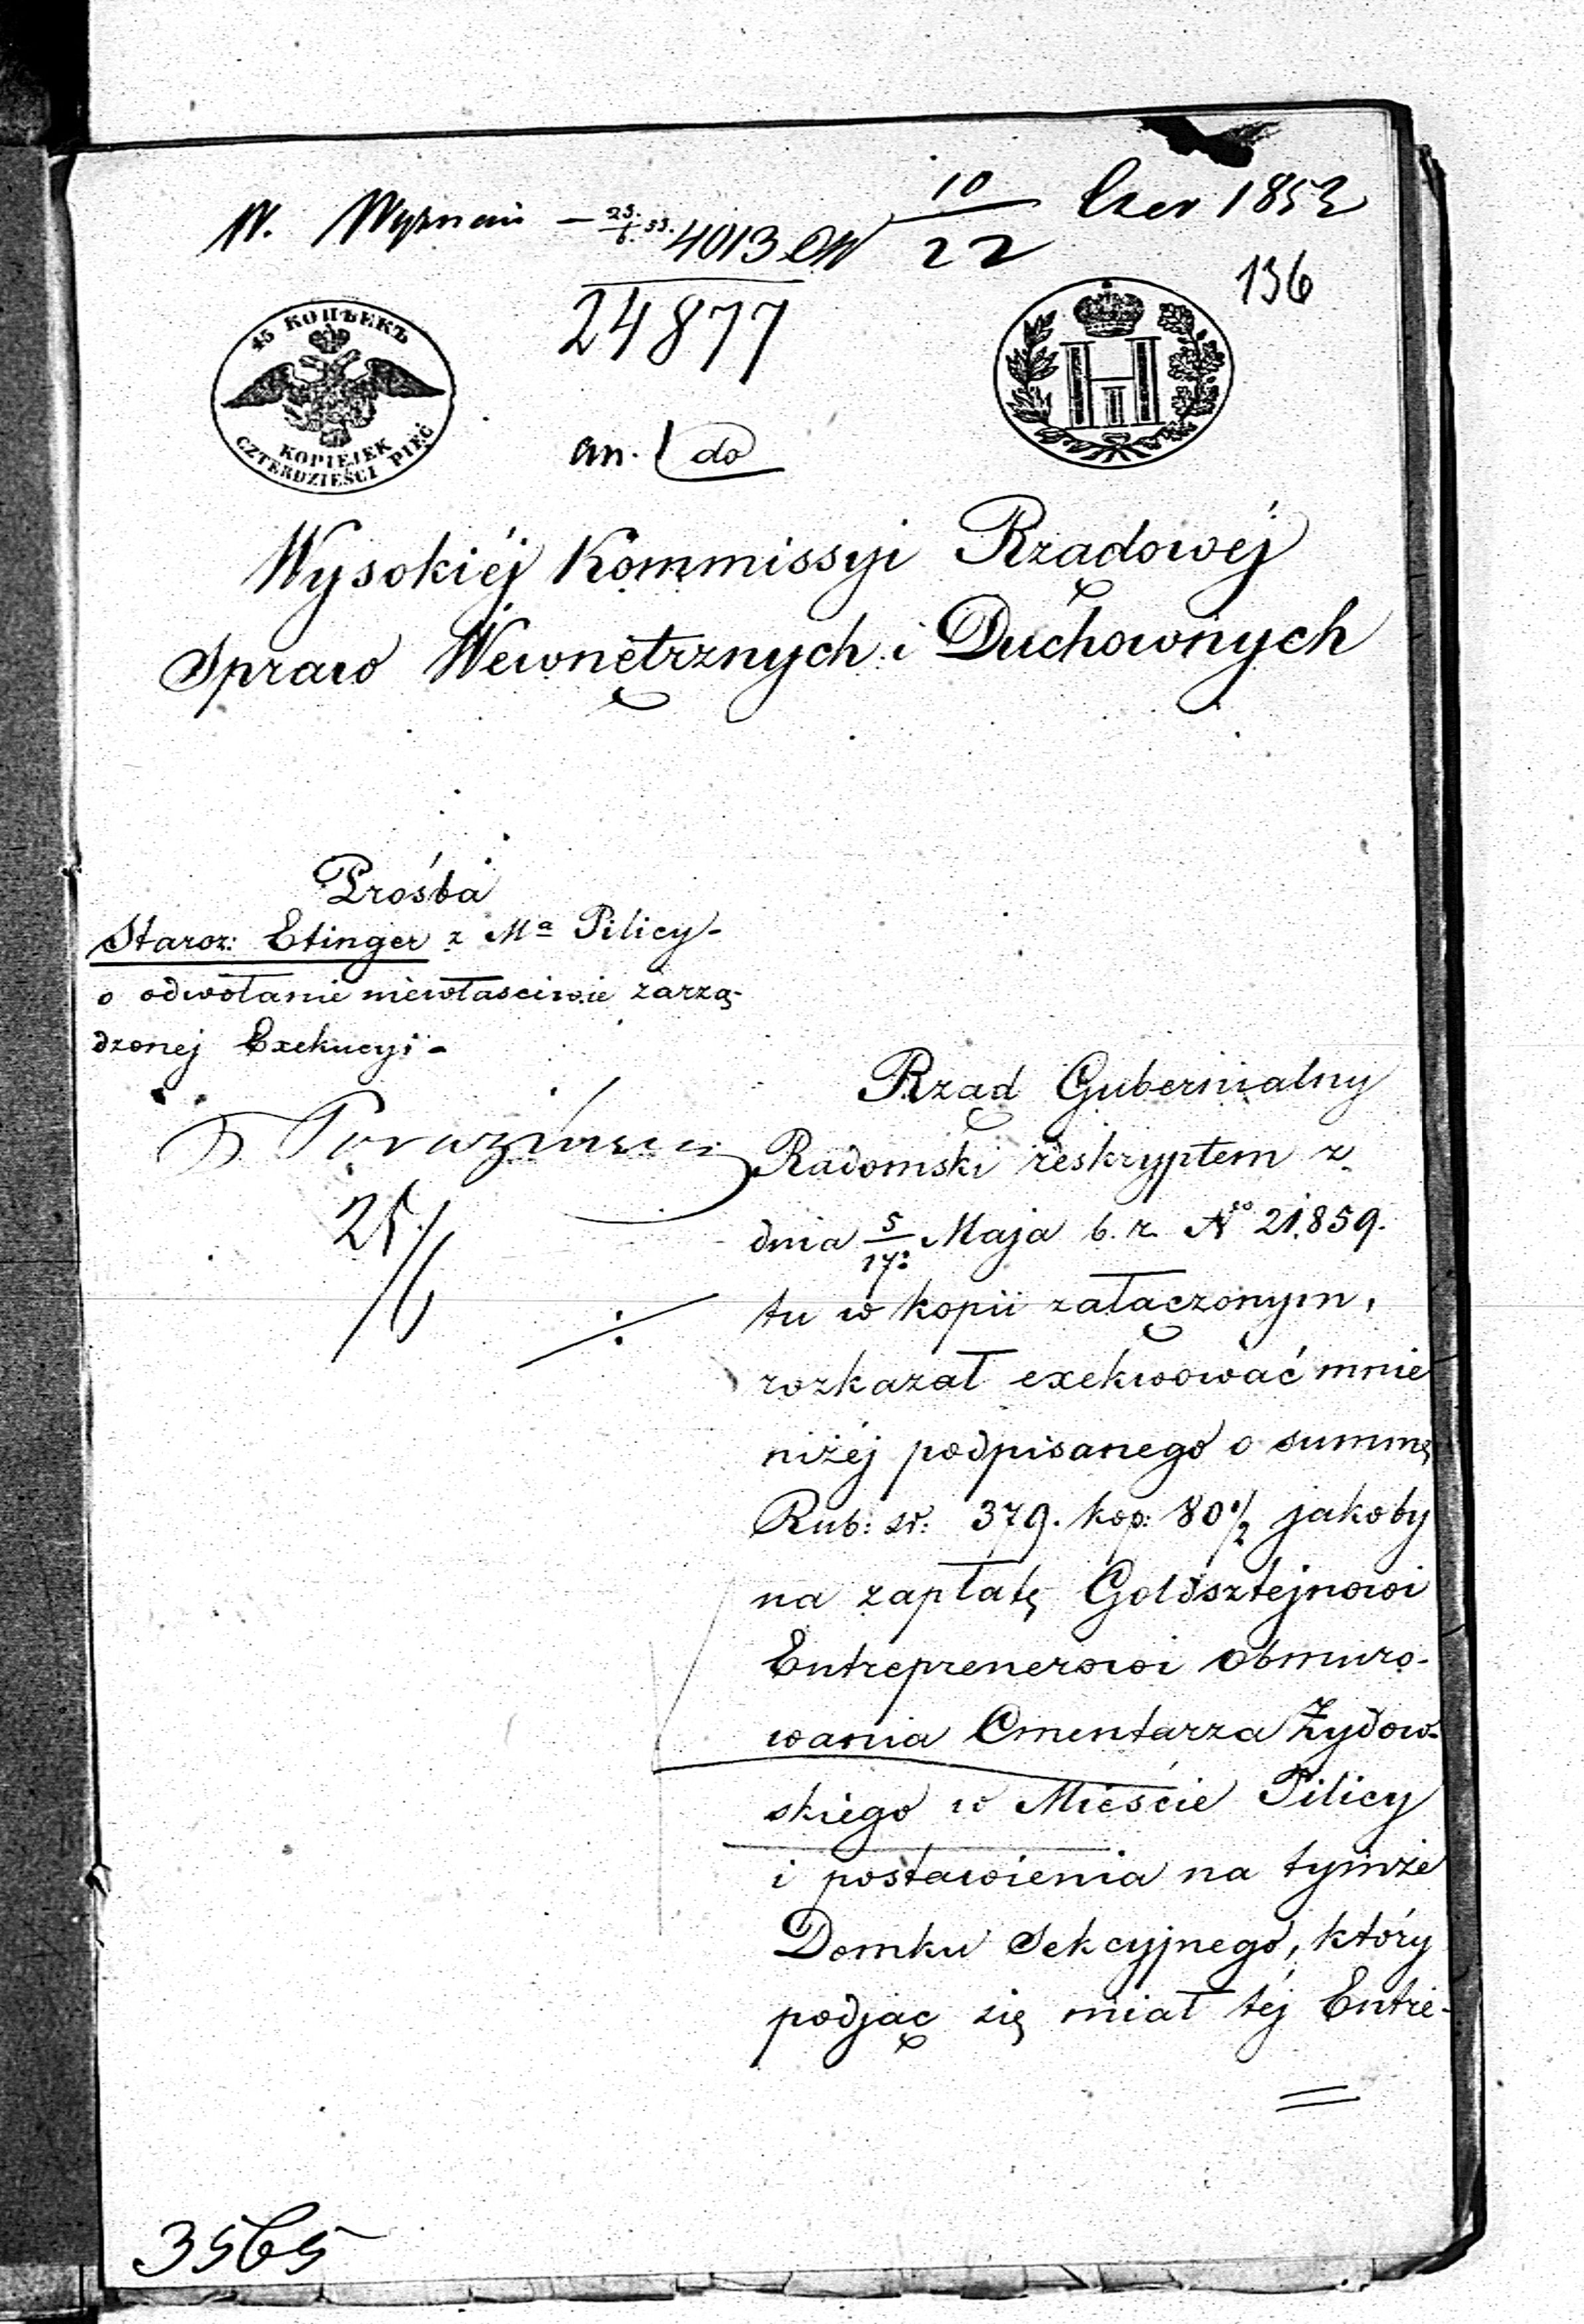 W. Wyznań – 23/6 53. 4013 10/22 Czer 1853
24877
136
45 КОПѢЕКЪ
KOPIEJEK
CZTERDZIEŚCI PIĘĆ
an. 1 do
Wysokiéj Kommissyi Rządowéj
Spraw Wewnętrznych i Duchownych
Prośba
Staroz: Etinger z Mᵃ Pilicy-
o odwołanie niewłaściwie zarzą-
dzonej Exekucyi -
25/6
Rząd Gubernialny
Radomski reskryptem z
dnia 5/17: Maja b. r. Nº 21,859.
tu w kopii załączonym,
rozkazał exekwować mnie
niżéj podpisanego o summę
Rub: sr: 379. kop: 80 1/2 jakoby
na zapłatę Goldsztejnowi
Entreprenerowi obmuro-
wania Cmentarza Żydow-
skiego w Mieście Pilicy
i postawienia na tymże
Domku Sekcyjnego, który
podjąć się miał téj Entre-
3565